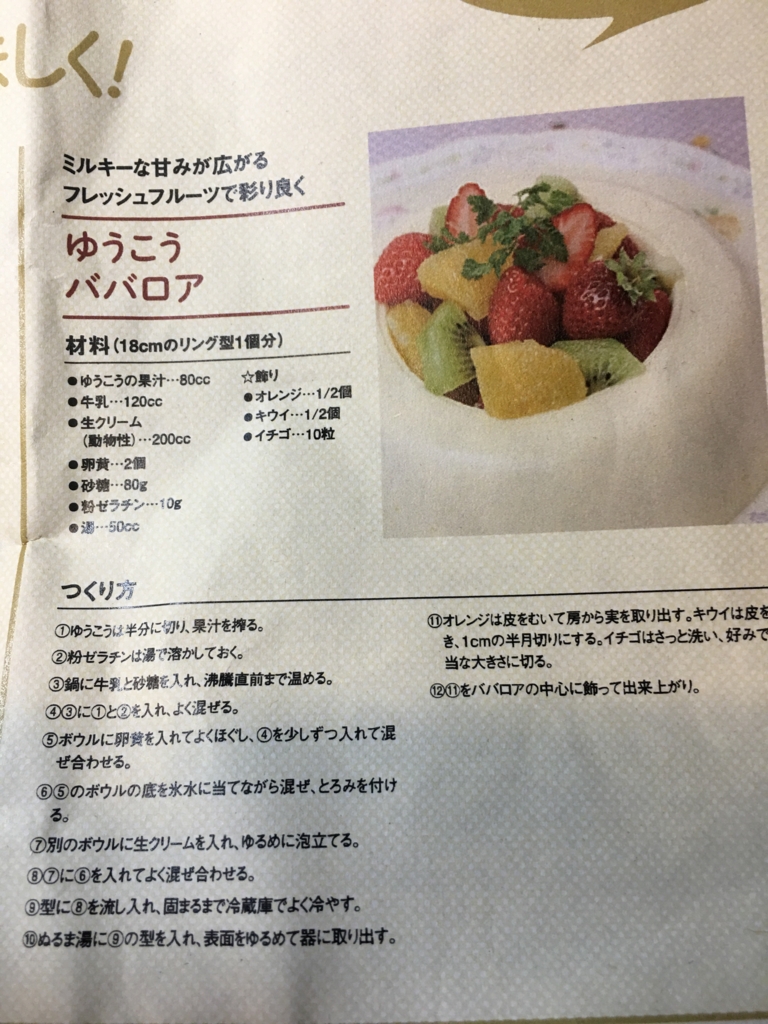 しく!
ミルキーな甘みが広がる
フレッシュフルーツで彩り良く
ゆうこう
ババロア
材料(18cmのリング型1個分)
●ゆうこうの果汁…80cc
●牛乳…120cc
●生クリーム
(動物性)…200cc
●卵黄…2個
●砂糖…80g
●粉ゼラチン…10g
●湯…50cc
☆飾り
●オレンジ…1/2個
●キウイ…1/2個
●イチゴ…10粒
つくり方
①ゆうこうは半分に切り、果汁を搾る。
②粉ゼラチンは湯で溶かしておく。
③鍋に牛乳と砂糖を入れ、沸騰直前まで温める。
④③に①と②を入れ、よく混ぜる。
⑤ボウルに卵黄を入れてよくほぐし、④を少しずつ入れて混
ぜ合わせる。
⑥⑤のボウルの底を氷水に当てながら混ぜ、とろみを付け
る。
⑦別のボウルに生クリームを入れ、ゆるめに泡立てる。
⑧⑦に⑥を入れてよく混ぜ合わせる。
⑨型に⑧を流し入れ、固まるまで冷蔵庫でよく冷やす。
⑩ぬるま湯に⑨の型を入れ、表面をゆるめて器に取り出す。
⑪オレンジは皮をむいて房から実を取り出す。キウイは皮を
き、1cmの半月切りにする。イチゴはさっと洗い、好みで
当な大きさに切る。
⑫⑪をババロアの中心に飾って出来上がり。